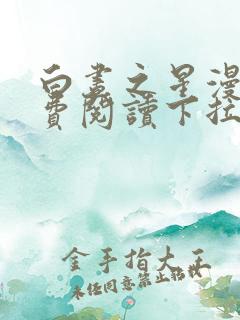 白晝之星漫
費閱讀下拉
金手指大王
未经同意禁止转载